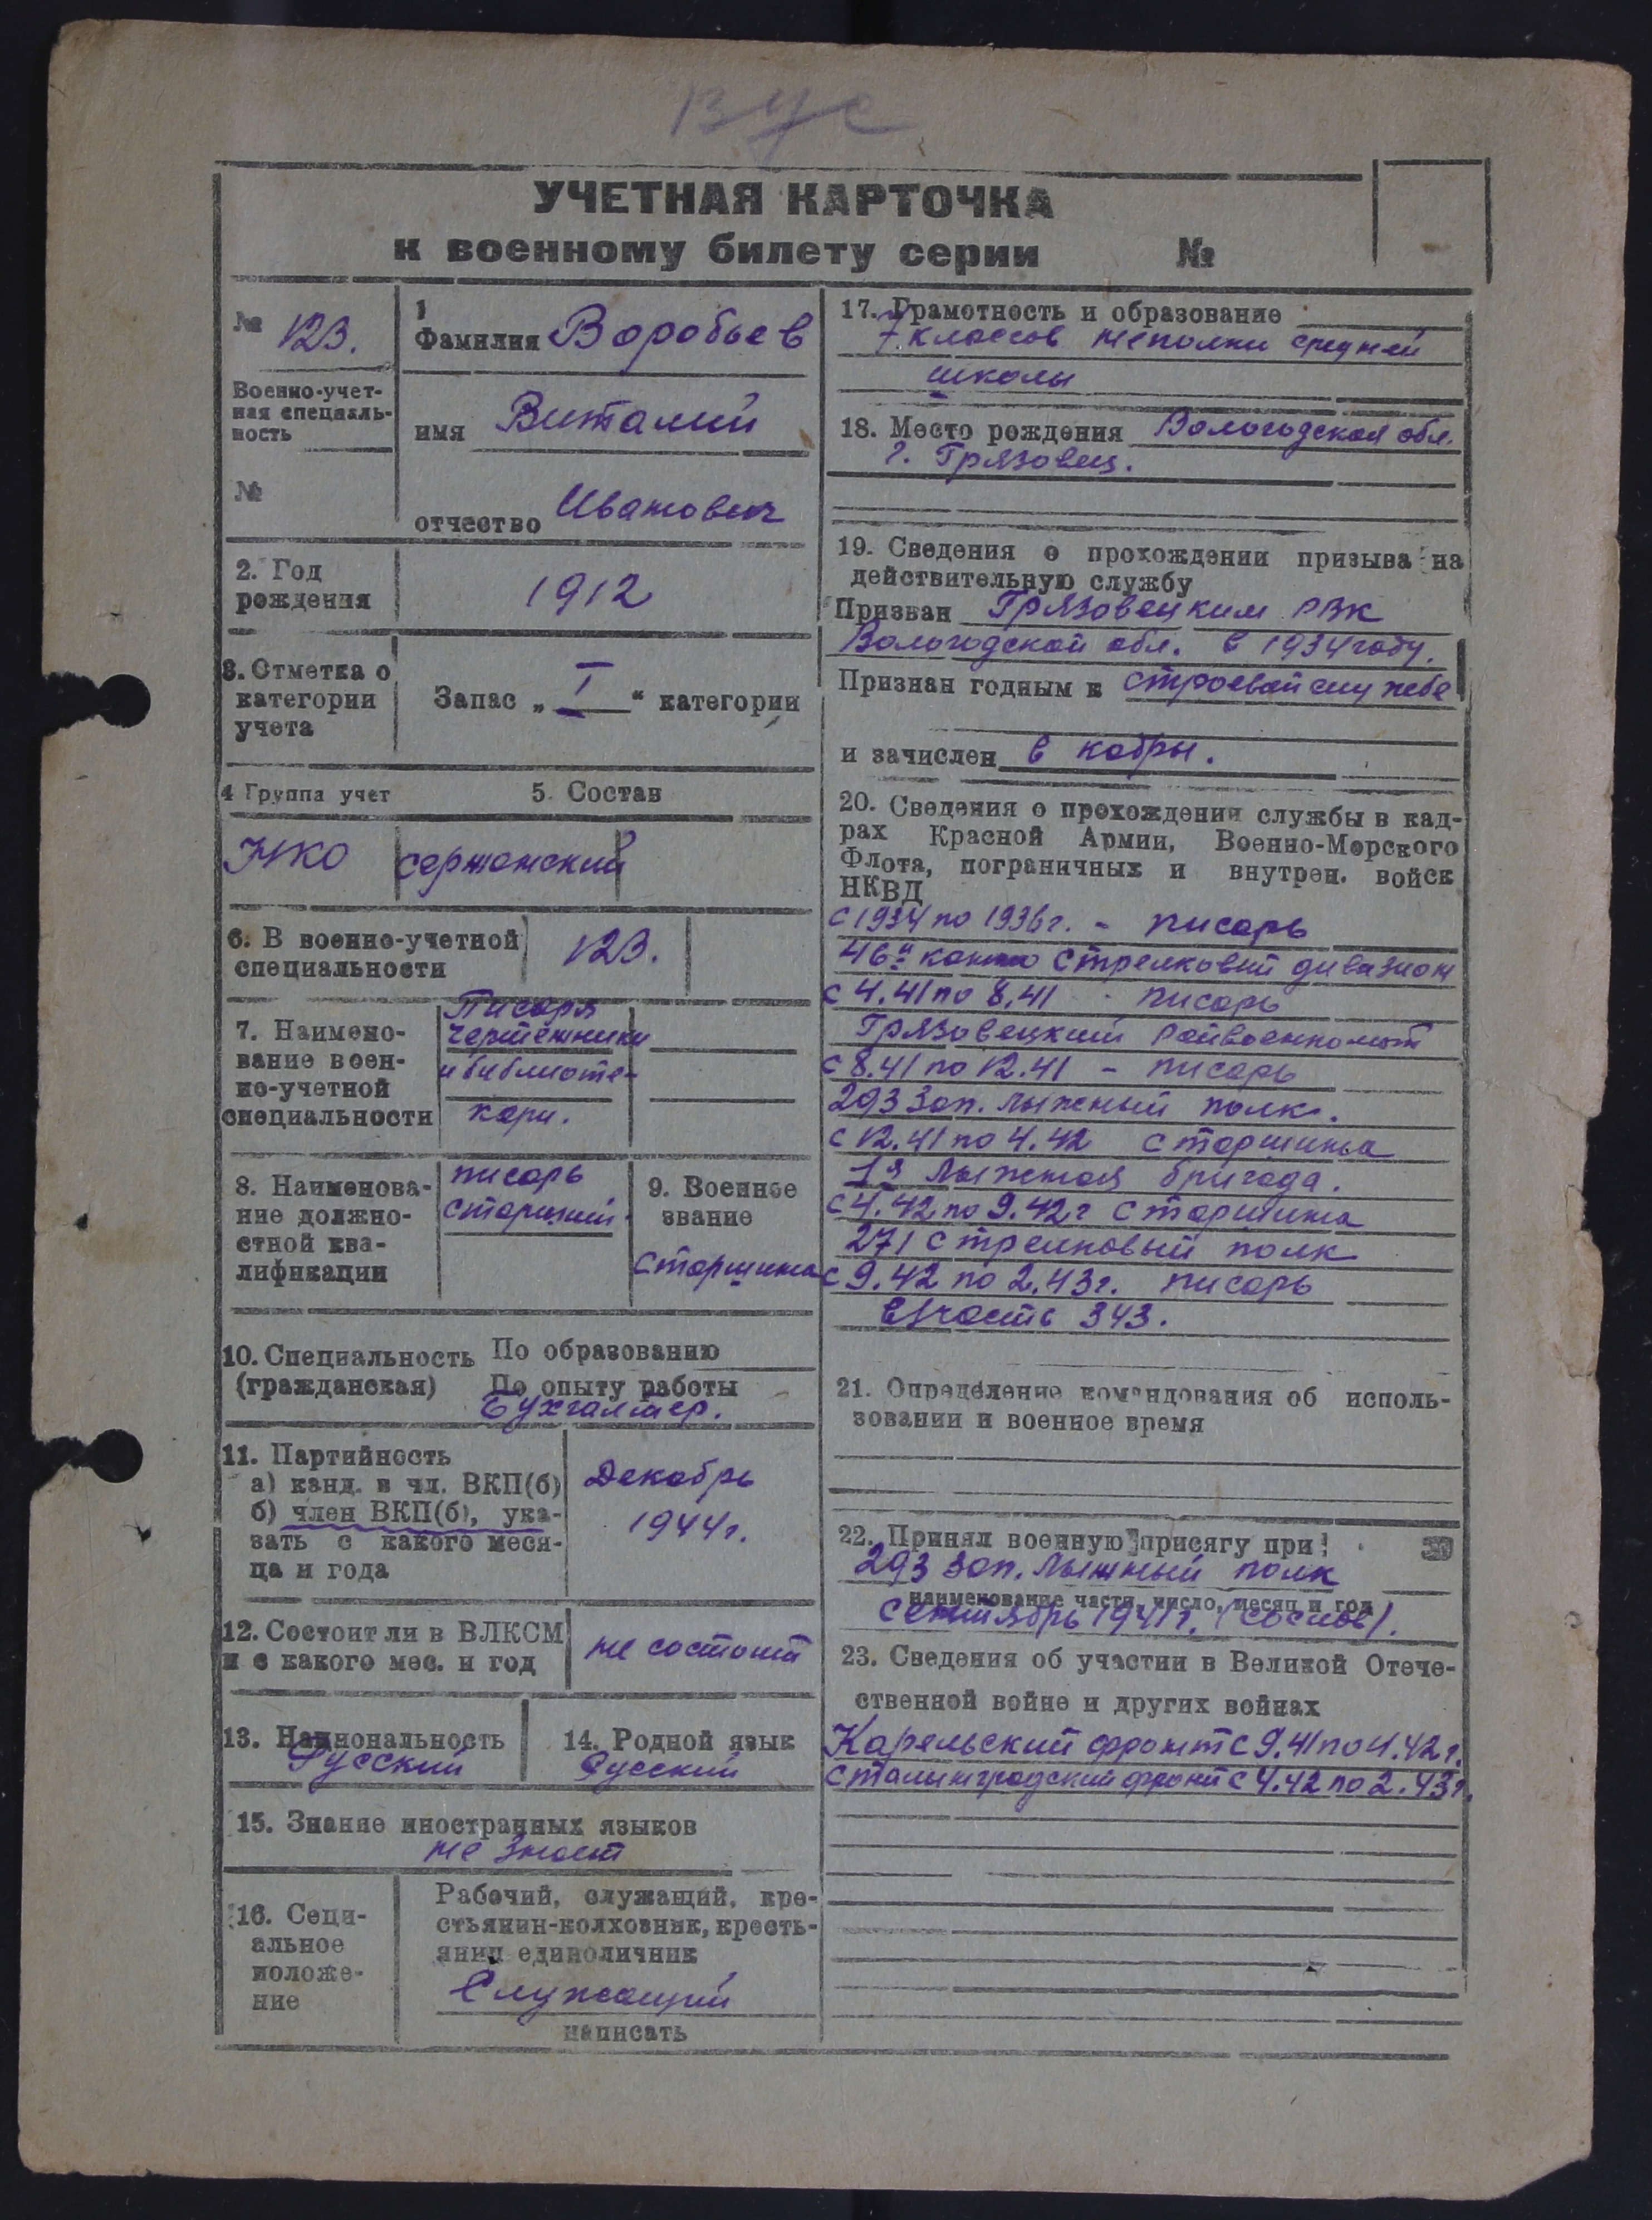 ВУС
УЧЕТНАЯ КАРТОЧКА
к военному билету серии №
№ 123.
Военно-учет-
ная специаль-
ность
№
1
Фамилия Воробьев
имя Виталий
отчество Иванович
2. Год
рождения
1912
3. Отметка о
категории
учета
Запас „ I “ категории
4 Группа учет
5. Состав
НКО
сержанский
6. В военно-учетной
специальности
123.
7. Наимено-
вание воен-
но-учетной
специальности
Писаря
чертёжники
и библиоте-
кари.
8. Наименова-
ние должно-
стной ква-
лификации
писарь
старший.
9. Военное
звание
старшина
10. Специальность
(гражданская)
По образованию
По опыту работы
Бухгалтер.
11. Партийность
а) канд. в чл. ВКП(б)
б) член ВКП(б), ука-
зать с какого меся-
ца и года
Декабрь
1944г.
12. Состоит ли в ВЛКСМ
и с какого мес. и год
не состоит
13. Национальность
Русский
14. Родной язык
Русский
15. Знание иностранных языков
не знает
16. Соци-
альное
положе-
ние
Рабочий, служащий, кре-
стьянин-колхозник, кресть-
янин единоличник
Служащий
написать
17. Грамотность и образование
7 классов неполни средней
школы
18. Место рождения Вологодская обл.
г. Грязовец.
19. Сведения о прохождении призыва на
действительную службу
Призван Грязовецким РВК
Вологодской обл. в 1934 году.
Признан годным к строевой службе
и зачислен в кадры.
20. Сведения о прохождении службы в кад-
рах Красной Армии, Военно-Морского
Флота, пограничных и внутрен. войск
НКВД
с 1934 по 1936г. - писарь
46й конно стрелковый дивизион
с 4.41 по 8.41 - писарь
Грязовецкий Райвоенкомат
с 8.41 по 12.41 - писарь
293 зап. лыжный полк.
с 12.41 по 4.42 старшина
1я лыжная бригада.
с 4.42 по 9.42г старшина
271 стрелковый полк
с 9.42 по 2.43г. писарь
в/часть 343.
21. Определение командования об исполь-
зовании и военное время
22. Принял военную присягу при
293 зап. лыжный полк
наименование части, число, месяц и год
сентябрь 1941г.
23. Сведения об участии в Великой Отече-
ственной войне и других войнах
Карельский фронт с 9.41 по 4.42г.
Сталинградский фронт с 4.42 по 2.43г.